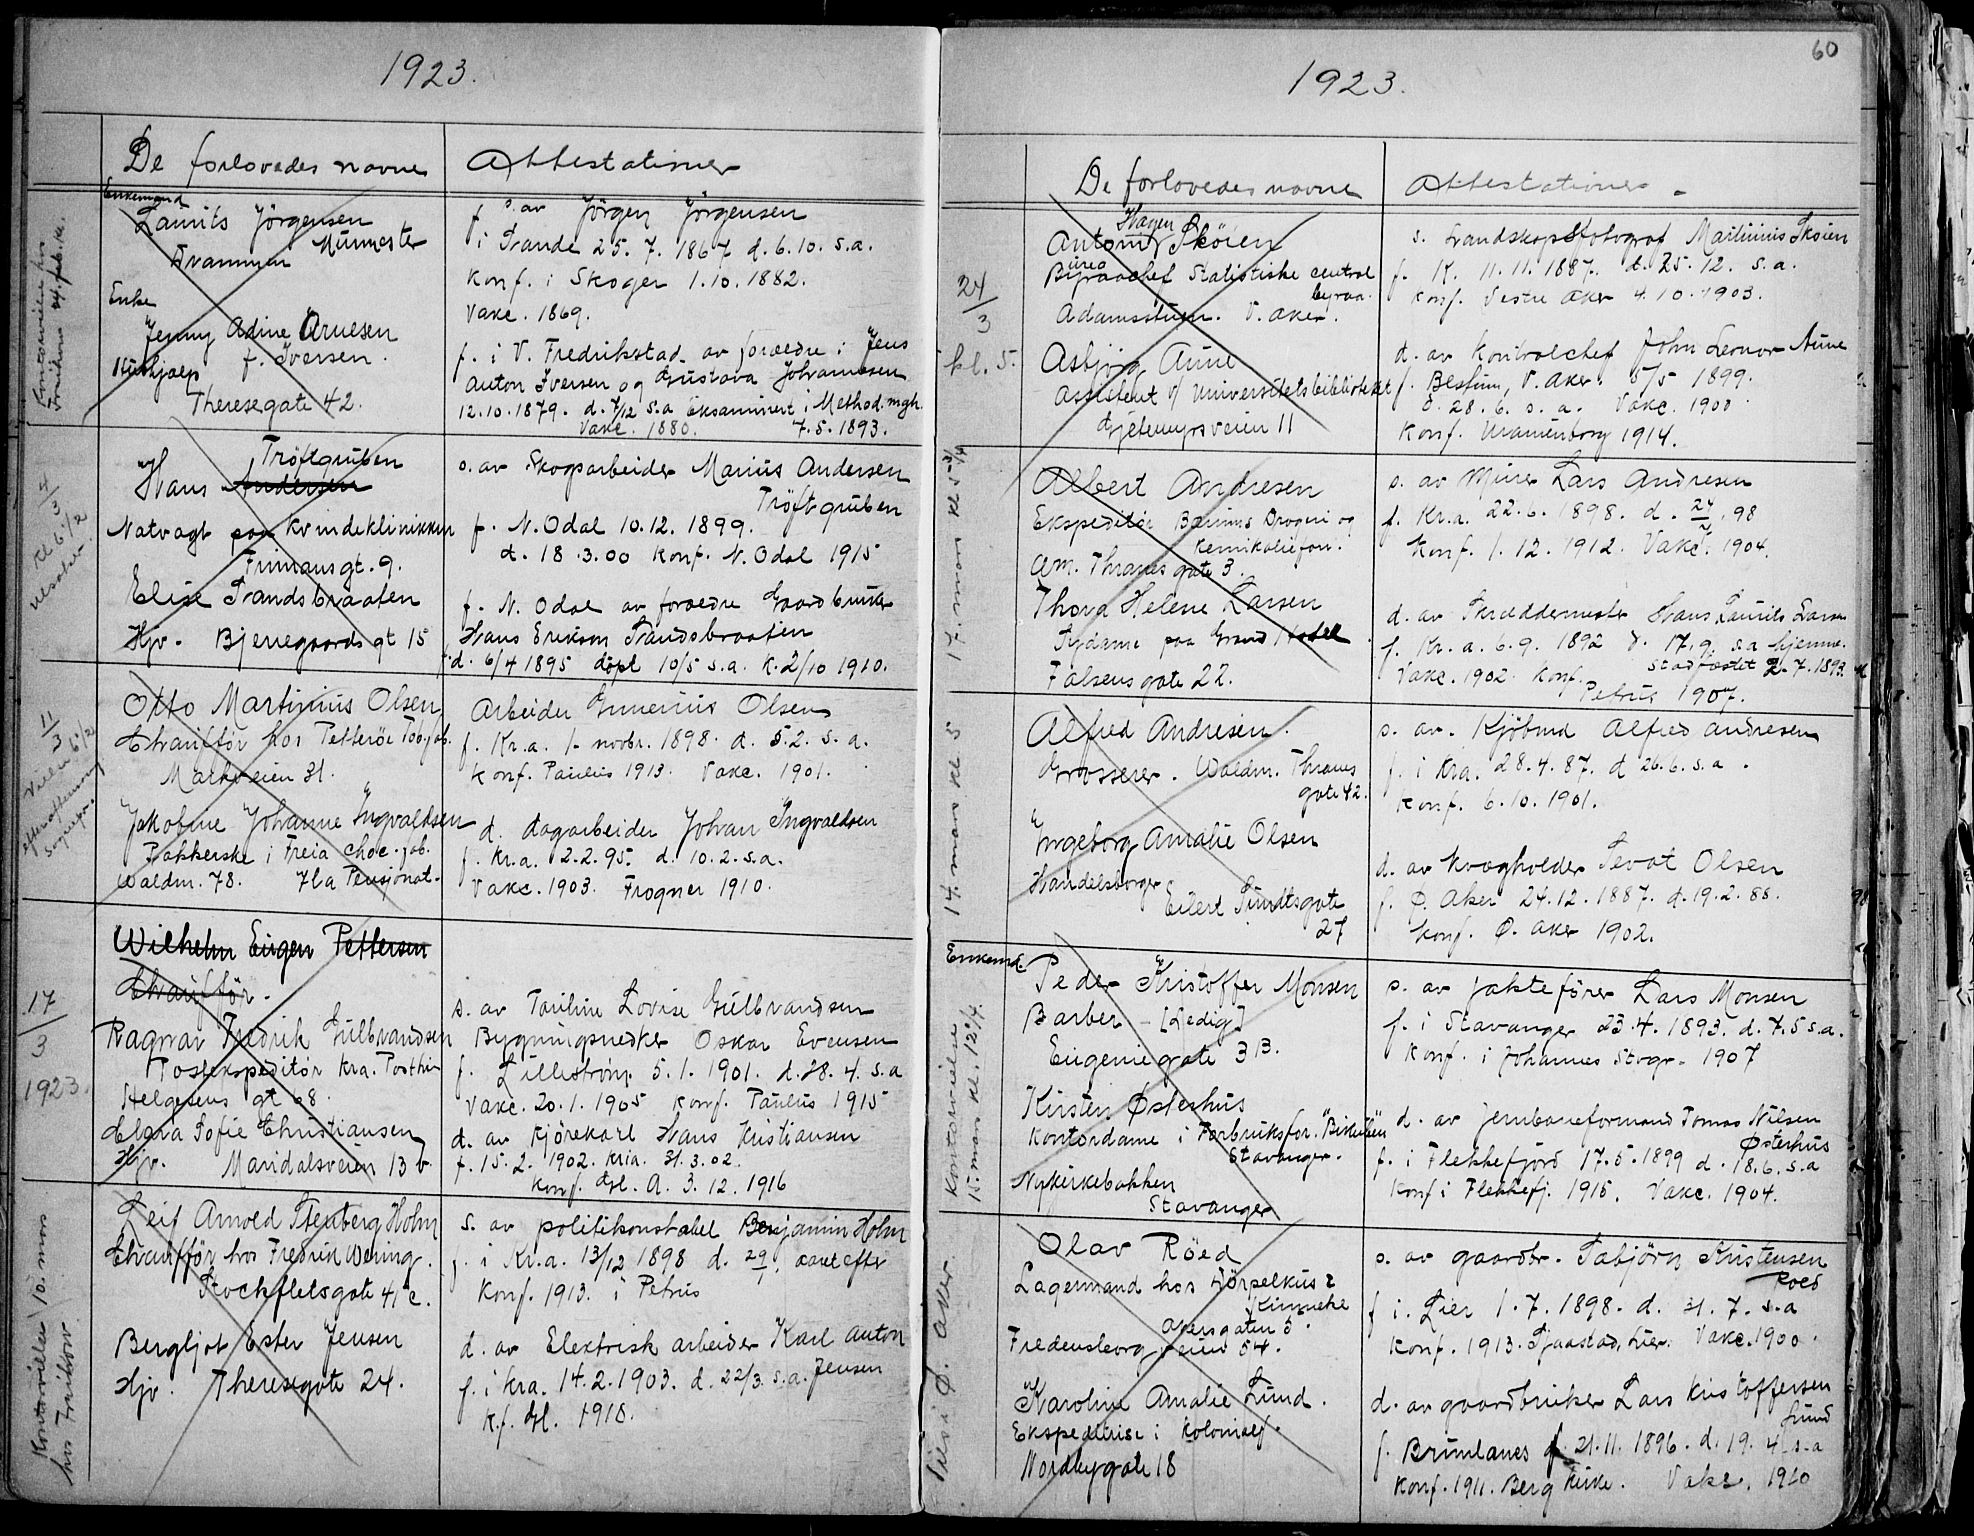 1923.
De forlovedes navne
Attestationer
Enkemand
Lauritz Jörgensen
Murmester
Drammen
Enke
Jenny Adine Arnesen
f. Iversen.
Hushjælp
Theresegate 42.
f. s. av Jörgen Jörgensen
i Strande 25. 7. 1867 d. 6. 10. s.a.
Konf. i Skoger 1. 10. 1882.
Vakc. 1869.
f. i V. Fredrikstad av forældre: Jens
Anton Iversen og Gustava Johannesen
12. 10. 1879. d. 7/12 s.a. Eksaminert i Method. mgh.
Vakc. 1880. 7. 5. 1893.
4/3
kl 6 1/2
Tröftgruben
Hans Andersen
Natvagt paa Kvindeklinikken
Frimansgt. 9.
Elise Strandsbraaten
Hjv. Bjerregaards gt 15
s. av Skogsarbeider Marius Andersen
Tröftgruben
f. N. Odal 10. 12. 1899.
d. 18. 3. 00 konf. N. Odal 1915
f. N. Odal av forældre Gaardbruker
Hans Erikson Strandsbraaten
d. 6/4 1895 döpt 10/5 s.a. k. 2/10 1910.
11/3
Otto Martinius Olsen
Chaufför hos Petteröe Tob. fab.
Markveien 31.
Jakobine Johanne Ingvaldsen
Pakkerske i Freia Choc. fab.
Waldm. 78. Hla Pensjonat.
Arbeider Gunerius Olsen
f. Kr.a. 1. novbr. 1898. d. 5. 2. s. a.
Konf. Paulus 1913. Vakc. 1901.
d. dagarbeider Johan Ingvaldsen
f. Kr.a. 2. 2. 95. d. 10. 2. s.a.
Vakc. 1903. Frogner 1910.
17/3
1923.
Wilhelm Eugen Pettersen
Chaufför.
Ragnar Fredrik Gulbrandsen
Postekspeditör Kra. Posthus
Helgesens gt 68.
Clara Sofie Christiansen
Hjv. Maridalsveien 13 b.
s. av Pauline Lovise Gulbrandsen
Bygningssnedker Oskar Evensen
f. Lilleström 5. 1. 1901. d. 28. 4. s.a
Vakc. 20. 1. 1905 Konf. Paulus 1915
d. av Kjörekarl Hans Kristiansen
f. 15. 2. 1902. Kria. 31. 3. 02.
Konf. Gl. A. 3. 12. 1916
Kontorvielse 10. mars
hos Fraihov.
Leif Arnold Stenberg Holm
Chaufför hos Fredrik Wering.
Stockfletsgate 41 c.
Bergljot Ester Jensen
Hjv. Theresegate 24.
s. av politikonstabel Benjamin Holm
f. i Kr.a. 13/12 1898 d. 29/1 aaret efter
Konf. 1913. i Petrus
d. av Elektrisk arbeider Karl Anton
Jensen
f. i Kra. 14. 2. 1903. d. 22/3. s.a.
K.f. Gl. 1918.
60
1923.
De forlovedes navne
Attestationer
24/3
kl. 5.
Hagen
Antoni Skøien
Byraachef Statistiske central
byraa.
Adamsstuen. V. Aker.
Asbjörg Aune
Assistent v/ Universitetsbiblioteket
Gjetemyrsveien 11
s. Landskapsfotograf Martinius Skøien
f. K. 11. 11. 1887. d. 25. 12. s.a.
Konf. Vestre Aker 4. 10. 1903.
d. av Kontrolchef John Leonor Aune
f. Bestum, V. Aker. 5/5 1899.
d. 28. 6. s. a. Vakc. 1900
Konf. Uranienborg 1914.
17. mars kl. 5
Albert Andresen
Ekspeditör Bærums Drogeri og
Kemikalieforr.
Am. Thranes gate 3.
Thora Helene Larsen
Sydame paa Grand Hotel
Falsens gate 22.
s. av Murer Lars Andresen
f. Kr.a. 22. 6. 1898. d. 24/7. 98
Konf. 1. 12. 1912. Vakc. 1904.
d. av Skræddermester Hans Laurits Larsen
f. Kr. a. 6. 9. 1892 d. 17. 9. s.a hjemme.
Stadfæstet 2. 7. 1893.
Vakc. 1902. Konf.
Petrus 1907.
14. mars kl 5
Alfred Andresen.
Grosserer. Waldm. Thranes
gate 42.
Ingeborg Amalie Olsen
Handelsborger
Eilert Sundtsgate
27
s. av. Kjöbmd Alfred Andresen
f. i Kra. 28. 4. 87. d 26. 6. s.a.
Konf. 6. 10. 1901.
d. av kvægholder Tevat Olsen
f. Ø. Aker 24. 12. 1887. d. 19. 2. 88.
Konf. Ø. Aker 1902.
Enkemd.
Kontorvielse
15. mars kl. 12 1/4.
Peder Kristoffer Monsen
Barber - [Ledig]
Eugeniegate 3 B.
Kirsten Østerhus
Kontordame i Forbruksfor. "Bikuben"
Stavanger.
Nykirkebakken
Stavanger
s. av jaktefører Lars Monsen
f. i Stavanger 23. 4. 1893. d. 7. 5 s.a.
Konf. i Johannes Stvgr. 1907
d. av jernbaneformand Tomas Nilsen
Østerhus
f. i Flekkefjord 17. 5. 1899 d. 18. 6. s.a
Konf i Flekkefj. 1915. Vakc. 1904.
Vies i Ø. Aker
Olav Röed
Lagermand hos
Akersgaten 5.
Fredensborgveien 54.
Karoline Amalie Lund.
Ekspeditrise i kolonialf.
Nordbygate 18
s. av gaardbr. Tabjörn Kristensen
Röed
f. i. Lier 1. 7. 1898. d. 31. 7. s.a
Konf. 1913. Sjaastad, Lier. Vakc. 1900.
d. av gaardbruker Lars Kristoffersen
Lund
f. Brunlanes d. 21. 11. 1896. d. 19. 4. s.a
Konf. 1911. Berg Kirke. Vakc. 1910